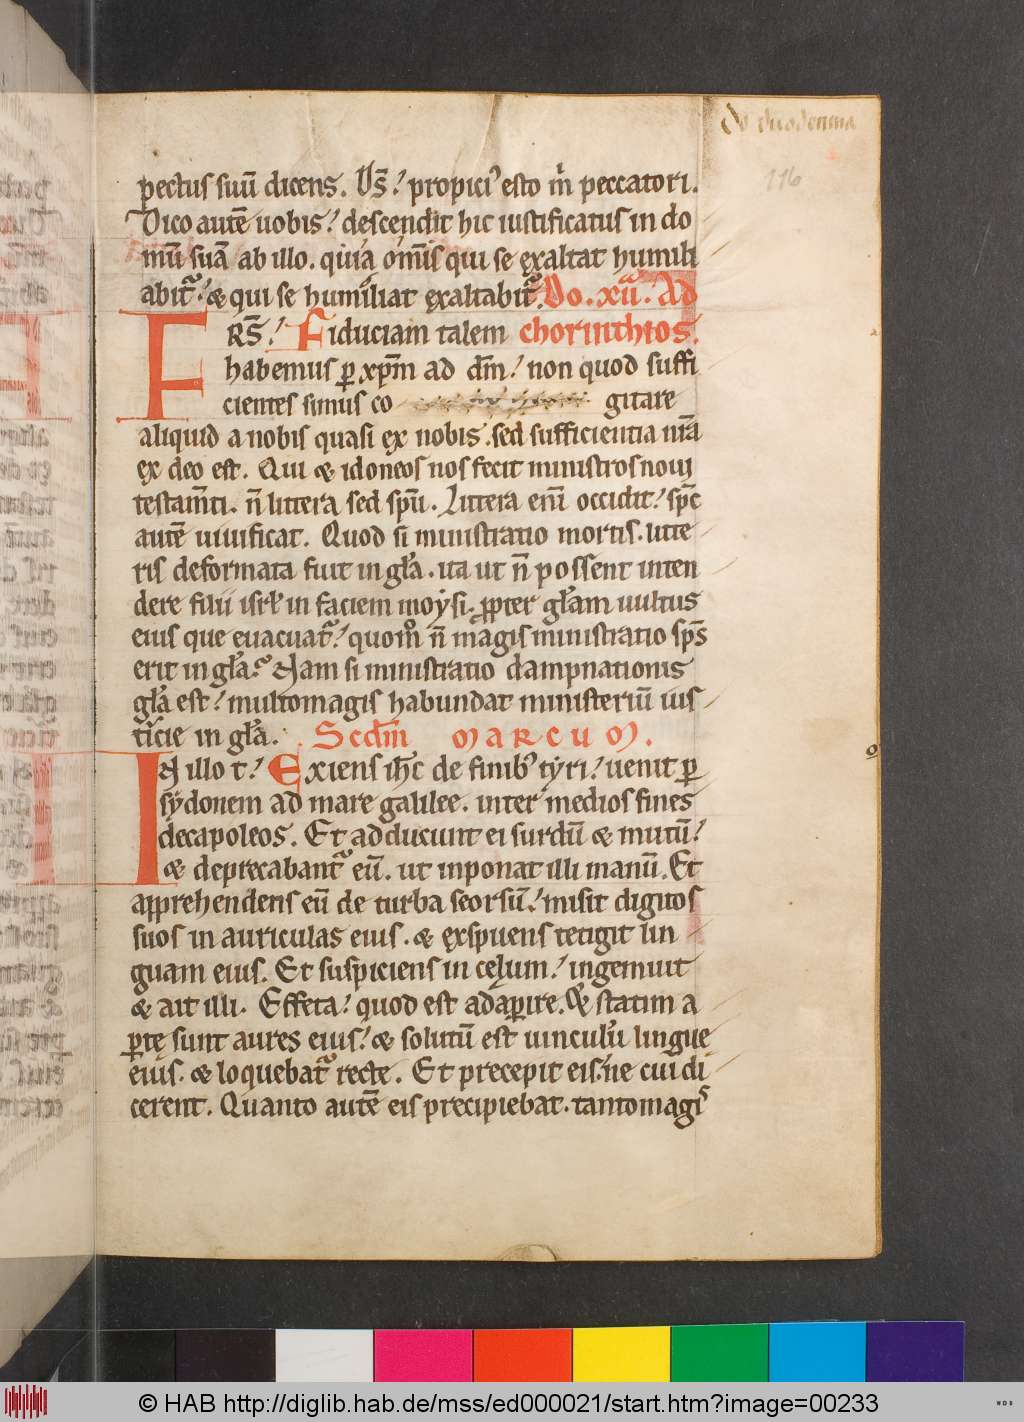 Do duodecima
116
pectus suū dicens. D̄s! propici᾿ esto m̍ peccatori.
Dico autē uobis! descendit hic iustificatus in do
mū suā ab illo. quia om̄is qui se exaltat humili
abit᷑! & qui se humiliat exaltabit᷑. Do. xii. Ad
FRS̄! Fiduciam talem chorinthios.
habemus ꝑ xp̄m ad dm̄! non quod suffi
cientes simus co gitare
aliquid a nobis quasi ex nobis. sed sufficientia nr̄a
ex deo est. Qui & idoneos nos fecit ministros noui
testam̄ti. n̄ littera sed spū. Littera enī occidit! sp̄c
autē uiuificat. Quod si ministratio mortis. litte
ris deformata fuit in gła. ita ut n̄ possent inten
dere filii isrł in faciem moẏsi. ꝓpter głam uultus
eius que euacuat᷑! quom̊ n̄ magis ministratio sp̄s
erit in gła? Nam si ministratio dampnationis
gła est! multomagis habundat ministeriū ius
ticie in gła. Scdm̄ marcum.
IN illo t̄! Exiens ih̄c de finib᾿ tẏri! uenit ꝑ
sẏdonem ad mare galilee. inter medios fines
decapoleos. Et adducunt ei surdū & mutū!
& deprecabant᷑ eū. ut inponat illi manū. Et
apprehendens eū de turba seorsū! misit digitos
suos in auriculas eius. & ęxspuens tetigit lin
guam eius. Et suspiciens in cęlum! ingemuit
& ait illi. Effeta! quod est adaꝑire. & statim a
ꝑtę sunt aures eius! & solutū est uinculū lingue
eius. & loquebat᷑ recte. Et precepit eis. ne cui di
cerent. Quanto autē eis precipiebat. tantomagis
© HAB http://diglib.hab.de/mss/ed000021/start.htm?image=00233